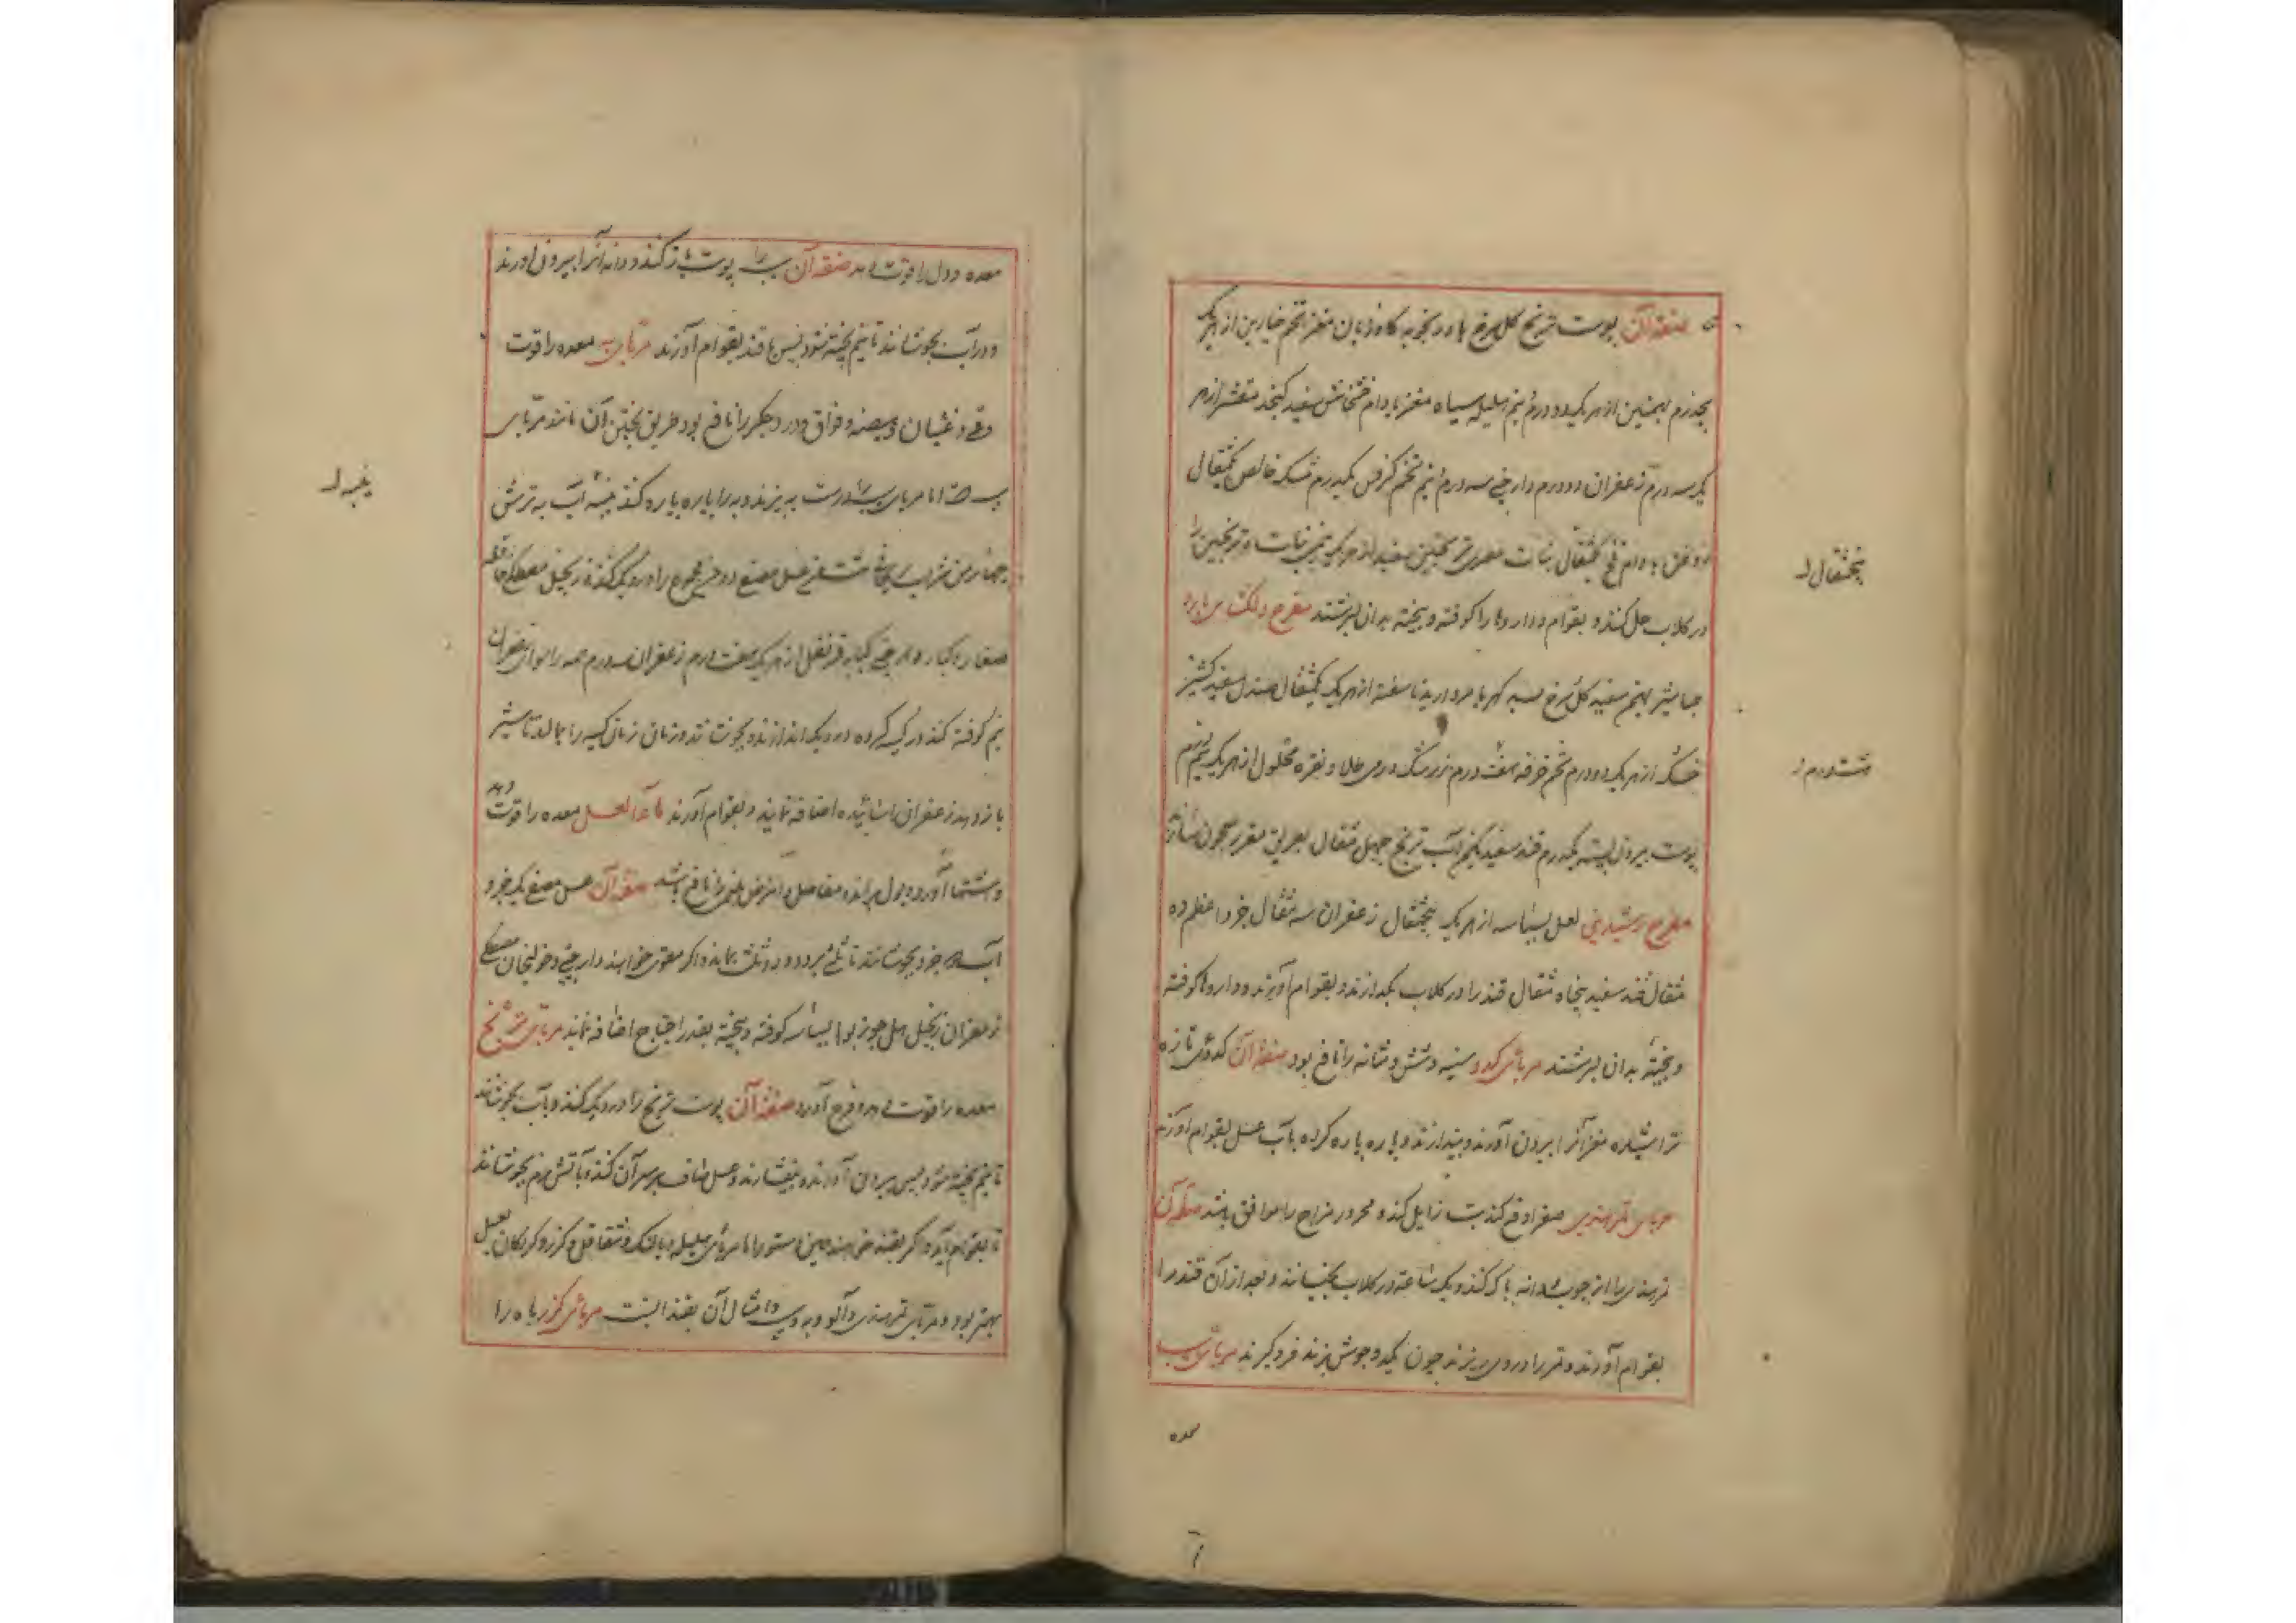 صفة آن پوست ترنج کل سرخ بادرنجبویه کاوزبان مغز تخم خیارین از هر یک
پنجدرم بهمنین از هر یک دو درم نیم هلیله سیاه مغز بادام خشخاش سفید کنجد مقشر از هر
یک سه درم زعفران دو درم دارچینی سه درم نیم تخم کرفس یکدرم مشک خالص یکمثقال
روغن بادام یکمثقال نبات مصری ترنجبین سفید از هر یک نبات و ترنجبین را
در کلاب حل کنند و بقوام و داروها را کوفته و بیخته بدان بسرشند مفرح دلکشای بارد
طباشیر بهمن سفید کل سرخ بسد کهربا مروارید ناسفته از هر یک یکمثقال صندل سفید کشنیز
خشک از هر یک دو درم تخم خرفه هفت درم زرشک درمی طلا و نقره محلول از هر یک نیم درم
پوست بیرون پسته یکدرم قند سفید آب ترنج چهل مثقال بطریق مقرر معجون سازند
مفرح رشیدی لعل بسباسه از هر یک پنجمثقال زعفران سه مثقال ده
مثقال قند سفید پنجاه مثقال قند را در کلاب بکدازند و بقوام آورند و داروها کوفته
و بیخته بدان بسرشند مربای کدو سینه و شش و مثانه را نافع بود صفة آن کدوی تازه
تراشیده مغز آنرا بیرون آورند و بیندازند و پاره پاره کرده با آب عسل بقوام آورند
مربای تمرهندی صفرا دفع کند تب زایل کند و محرور مزاج را موافق باشد صفة آن
تمرهندی را از چوب و دانه پاک کنند و یک ساعة در کلاب بخیسانند و بعد از آن قند را
بقوام آورند و تمر را در وی ریزند چون یکدو جوش بزند فروکیرند مربای سیب
معده
پنجمثقال
معده و دل را قوت دهد صفة آن سیب را پوست باز کنند و دانه آنرا بیرون آورند
و در آب بجوشانند تا نیم پخته شود پس با قند بقوام آورند مربای به معده را قوت
وقی و غثیان و هیضه و فواق و درد جکر را نافع بود طریق پختن آن مانند مربای
سیب است اما مربای سیب را درست به پزند و به را پاره پاره کنند آب به ترش
چهار من شراب ریحانی عسل مصفی دو من مجموع را در دیک کنند زنجبیل مصطکی قاقله
صغار و کبار دارچینی کبابه قرنفل از هر یک هفت درم زعفران سه درم همه را سوای زعفران
نیم کوفته کنند در کیسه کرده در دیک اندازند و بجوشانند و زمان زمان کیسه را بمالند تا شیر
باز دهد زعفران را سائیده اضافه نمایند و بقوام آورند ماء العسل معده را قوت دهد
و اشتها آورد و بول براند و مفاصل و امراض بلغمی را نافع باشد صفة آن عسل مصفی یک جزو
آب دو جزو بجوشانند تا ثلثی برود و دو ثلث بماند و اکر مقوی خواهند دارچینی و خولنجان مصطکی
زعفران زنجبیل هل جوز بوا بسباسه کوفته و بیخته بقدر احتیاج اضافه نمایند مربای ترنج
معده را قوت دهد و فرح آورد صفة آن پوست ترنج را در دیک کنند و بآب بجوشانند
تا نیم پخته شود پس بیرون آورند و بیفشارند و عسل صاف بر سر آن کنند و بآتش نرم بجوشانند
تا بقوام آید و اکر بقند خواهند همین دستور اما مربای هلیله و بالنک و شقاقل و کزر و کردکان بعسل
بهتر بود و مربای تمرهندی و آلو و به و سیب و امثال آن بقند انسب مربای کزر باه را